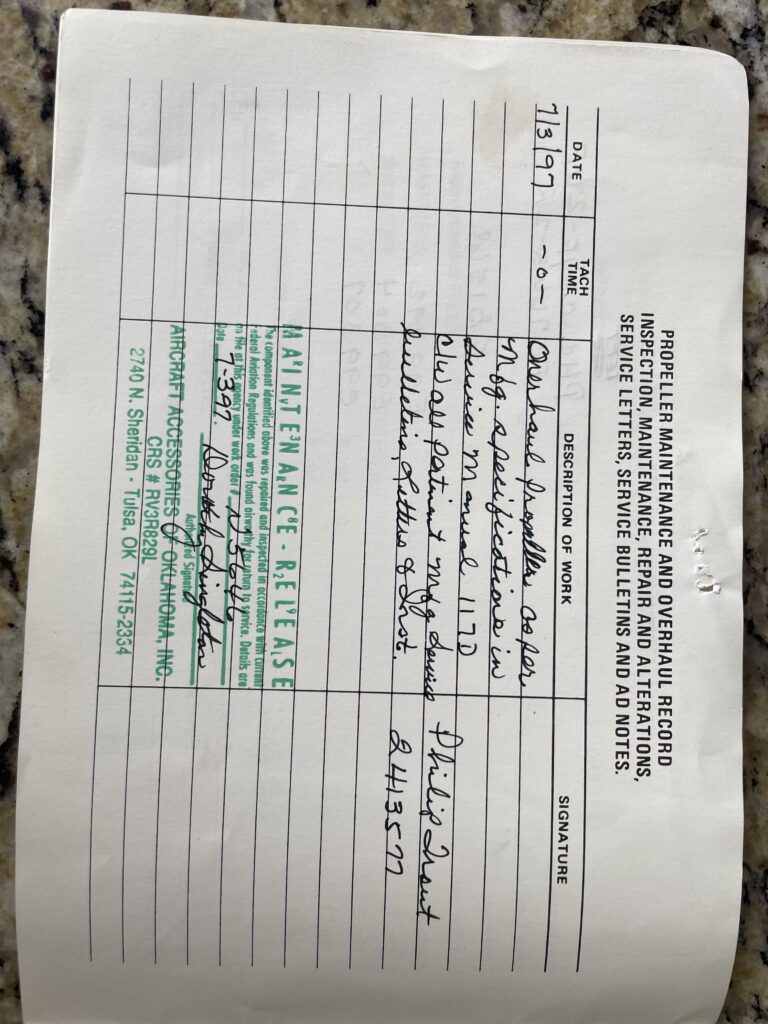 PROPELLER MAINTENANCE AND OVERHAUL RECORD
INSPECTION, MAINTENANCE, REPAIR AND ALTERATIONS,
SERVICE LETTERS, SERVICE BULLETINS AND AD NOTES.
DATE TACH TIME DESCRIPTION OF WORK SIGNATURE
7/3/97 -0- Overhaul propeller as per
Mfg. specifications in
Service Manual 117D
C/W all patinent Mfg Service Philip
bulletins, Letters & Inst. 2413577
MAINTENANCE - RELEASE
The component identified above was repaired and inspected in accordance with current
Federal Aviation Regulations and was found airworthy for return to service. Details are
on file at this agency under work order #
Date 7-3-97
Authorized Signature
AIRCRAFT ACCESSORIES OF OKLAHOMA, INC.
CRS # RV3R829L
2740 N. Sheridan - Tulsa, OK 74115-2334